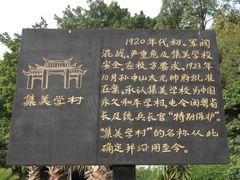 集美学村
1920年代初，军阀
混战，严重危及集美学校
安全。应校方要求，1923年
10月孙中山大元帅府批准
在案。承认集美学校为中国
永久和平学村，电令闽粤省
长及统兵长官"特别保护"。
"集美学村"的名称从此
确定并沿用至今。